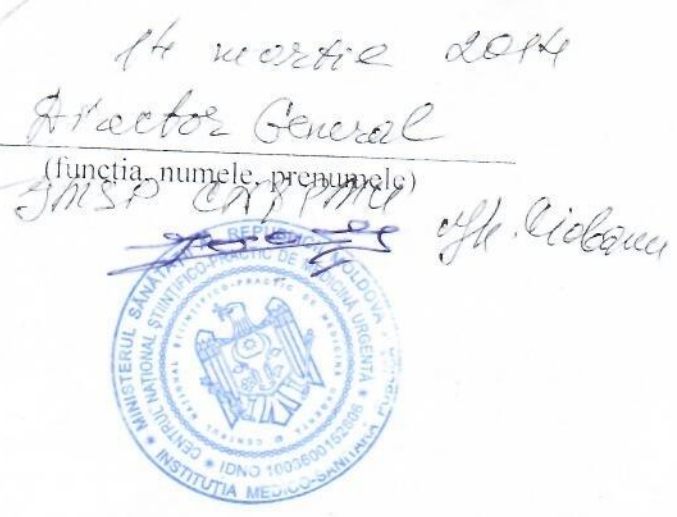 14 martie 2014
Director General
(funcția, numele, prenumele)
IMSP CNȘPMU Gh. Ciobanu
MINISTERUL SĂNĂTĂȚII REPUBLICII MOLDOVA
INSTITUȚIA MEDICO-SANITARĂ PUBLICĂ
CENTRUL NAȚIONAL ȘTIINȚIFICO-PRACTIC DE MEDICINĂ URGENȚĂ
IDNO 1003600152606